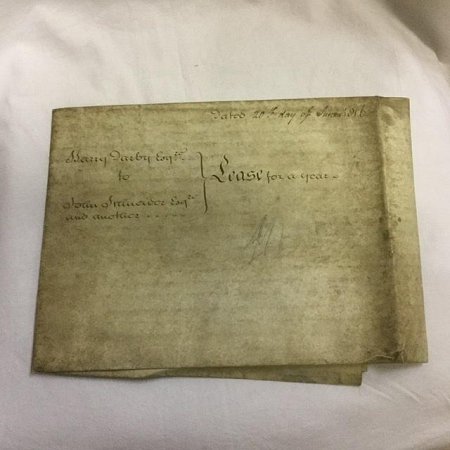 Dated 20th day of June 1816
Harry Darby Esqre
to
John Esqre
and another
Lease for a year